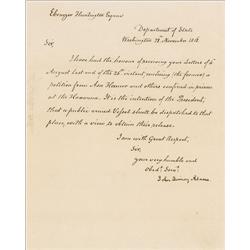 Ebenezer Huntington Esquire
Department of State
Washington 28. November 1818.
Sir,
I have had the honour of receiving your Letters of 4th
August last and of the 25th instant, enclosing (the former) a
petition from Asa Hosmer and others confined in prison
at the Havanna. It is the intention of the President,
that a public armed Vessel should be dispatched to that
place, with a view to obtain their release.
I am with Great Respect,
Sir,
your very humble and
Obedt. Servt.
John Quincy Adams